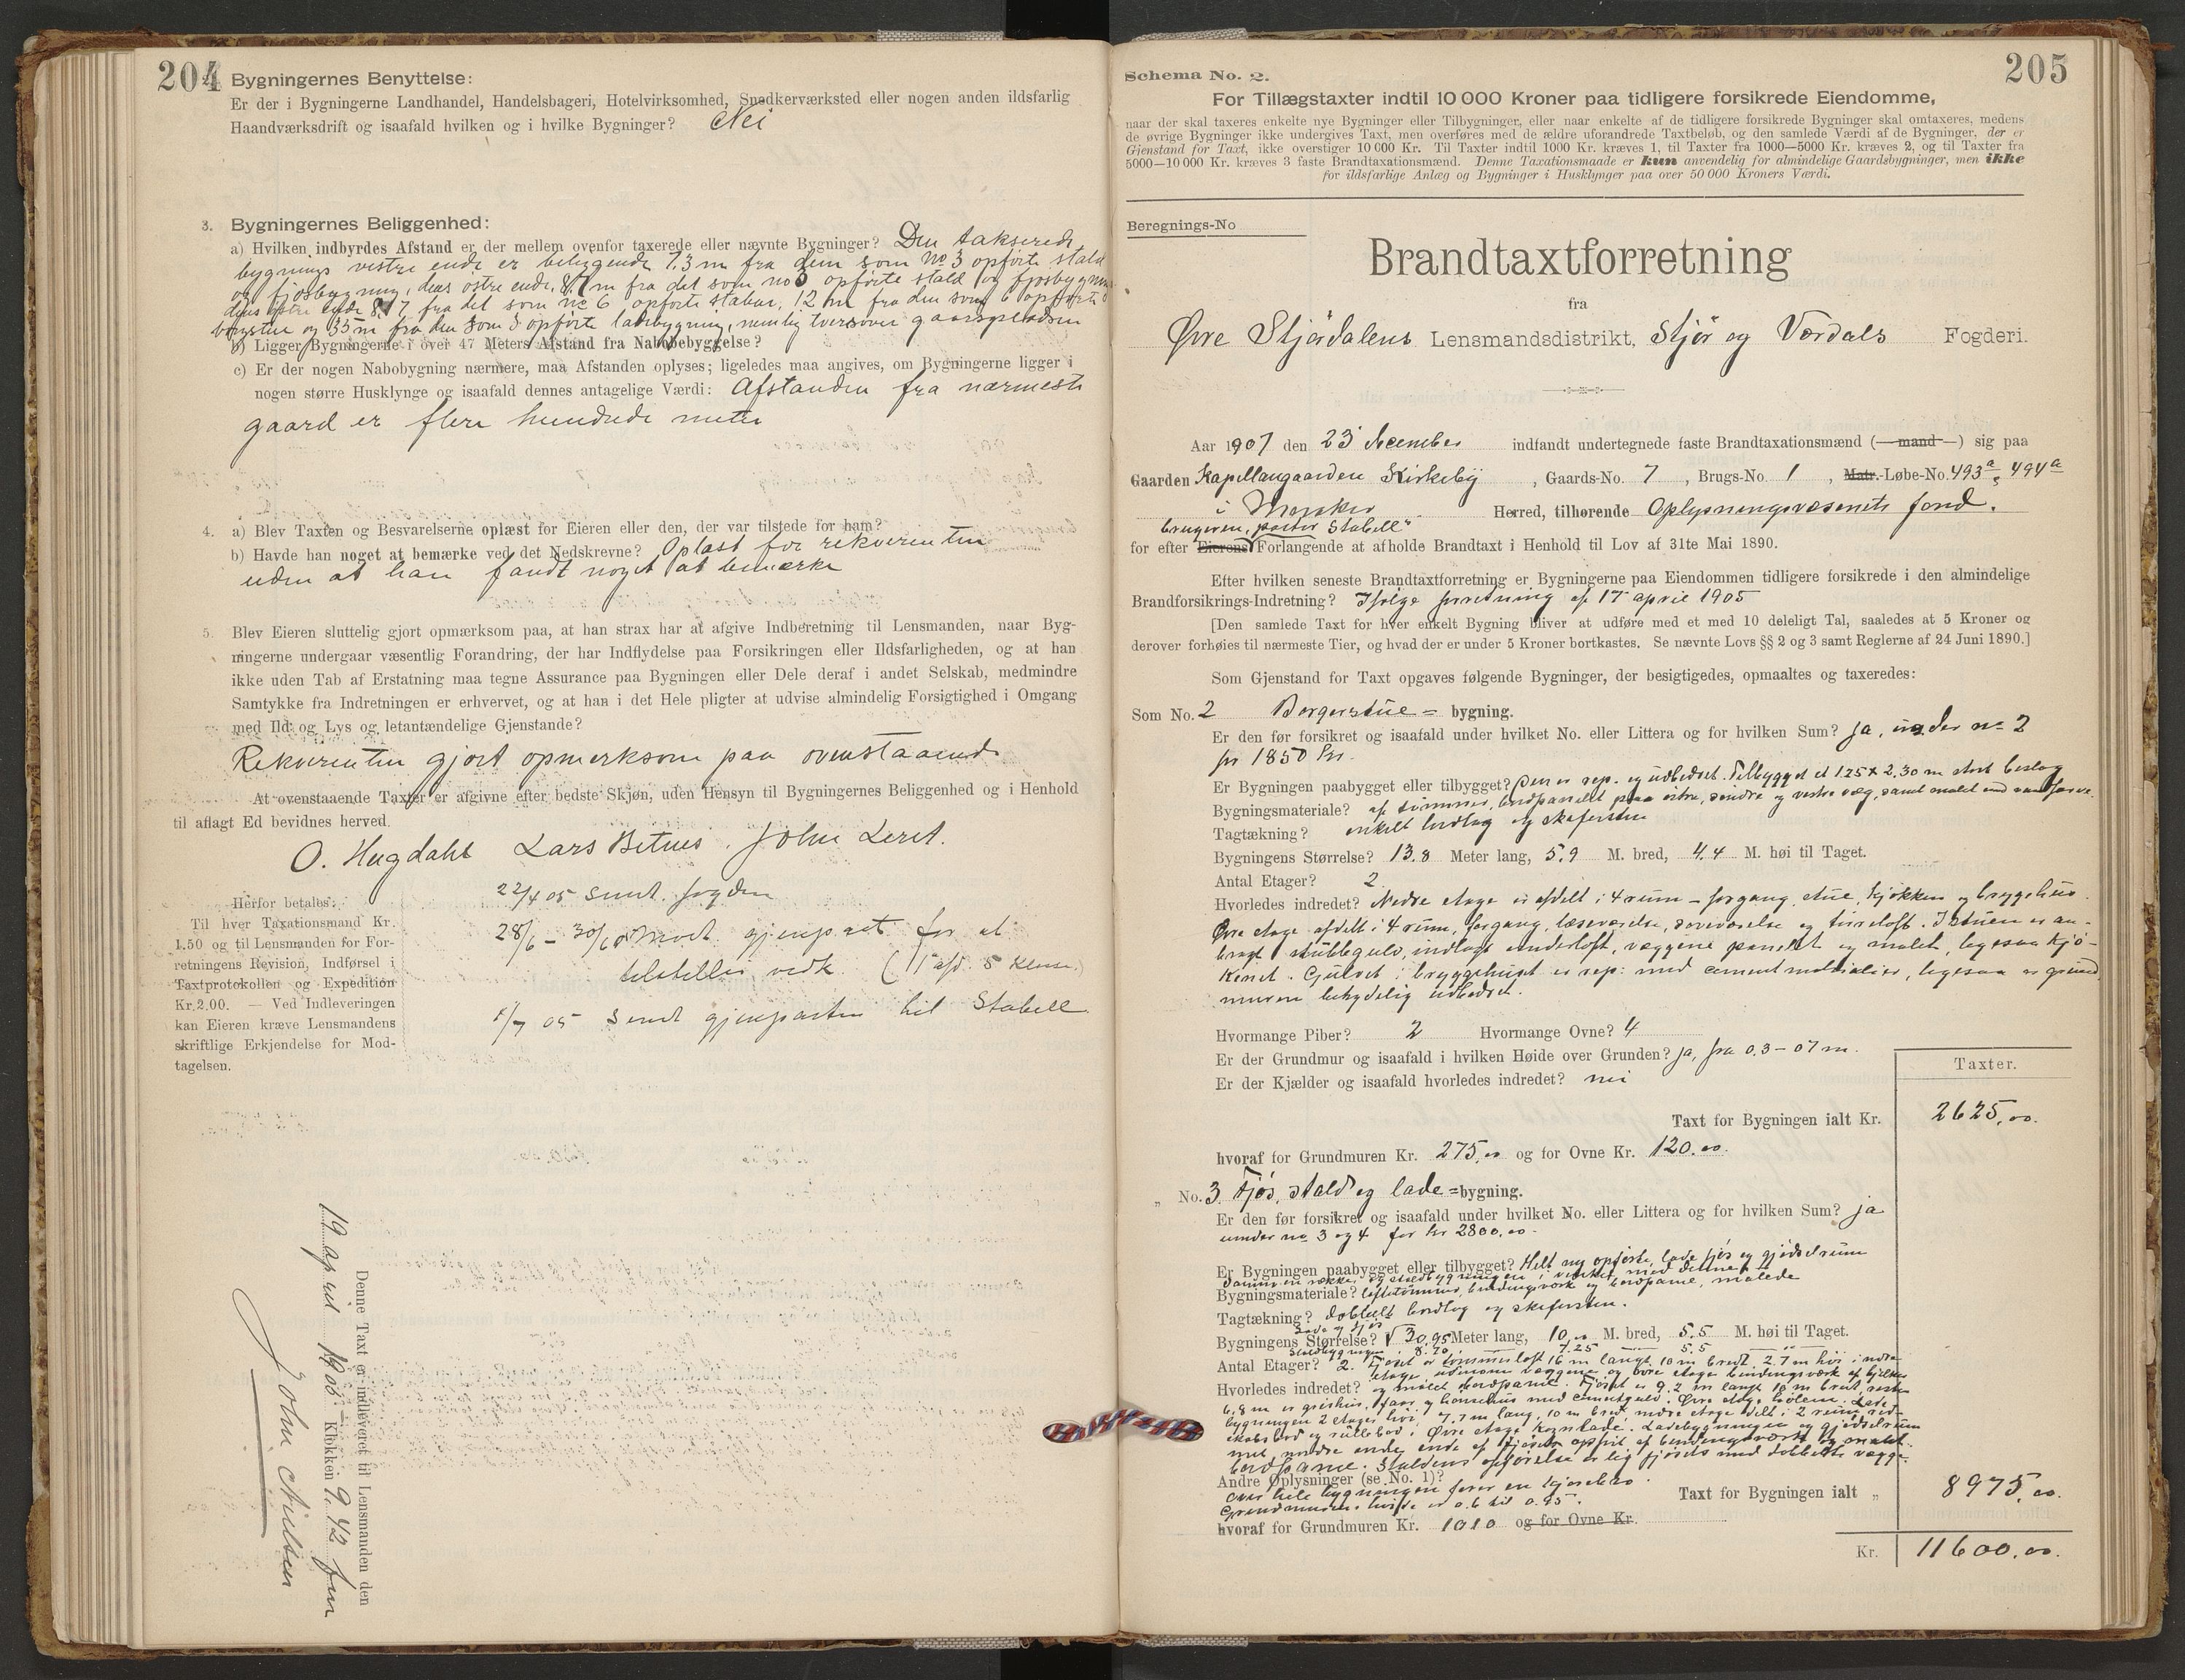 204
Bygningernes Benyttelse:
Er der i Bygningerne Landhandel, Handelsbageri, Hotelvirksomhed, Snedkerværksted eller nogen anden ildsfarlig
Haandværksdrift og isaafald hvilken og i hvilke Bygninger? Nei
3. Bygningernes Beliggenhed:
a) Hvilken indbyrdes Afstand er der mellem ovenfor taxerede eller nævnte Bygninger? Den takserede
bygnings vestre ende er beliggende 7.3 m fra dem som No 3 opførte stald
og fjøsbygning, dens østre ende, m fra det som no opførte stald og fjøsbygning
dens østre ende 8.7 fra det som no 6 opførte stabur, 12 m fra den som 6 opførte
og 35 m fra den som 5 opførte ladebygning, nemlig tversover gaardspladsen
b) Ligger Bygningerne i over 47 Meters Afstand fra Nabobebyggelse?
c) Er der nogen Nabobygning nærmere, maa Afstanden oplyses; ligeledes maa angives, om Bygningerne ligger i
nogen større Husklynge og isaafald dennes antagelige Værdi: Afstanden fra nærmeste
gaard er flere hundrede meter
4. a) Blev Taxten og Besvarelserne oplæst for Eieren eller den, der var tilstede for ham?
b) Havde han noget at bemærke ved det Nedskrevne? Oplæst for rekvirenten
uden at han fandt noget at bemærke
5. Blev Eieren sluttelig gjort opmærksom paa, at han strax har at afgive Indberetning til Lensmanden, naar Byg-
ningerne undergaar væsentlig Forandring, der har Indflydelse paa Forsikringen eller Ildsfarligheden, og at han
ikke uden Tab af Erstatning maa tegne Assurance paa Bygningen eller Dele deraf i andet Selskab, medmindre
Samtykke fra Indretningen er erhvervet, og at han i det Hele pligter at udvise almindelig Forsigtighed i Omgang
med Ild og Lys og letantændelige Gjenstande?
Rekvirenten gjort opmerksom paa ovenstaaende
At ovenstaaende Taxter er afgivne efter bedste Skjøn, uden Hensyn til Bygningernes Beliggenhed og i Henhold
til aflagt Ed bevidnes herved.
O. Hugdahl Lars Bitnes. John Leret.
Herfor betales:
Til hver Taxationsmand Kr.
1.50 og til Lensmanden for For-
retningens Revision, Indførsel i
Taxtprotokollen og Expedition
Kr. 2.00. — Ved Indleveringen
kan Eieren kræve Lensmandens
skriftlige Erkjendelse for Mod-
tagelsen.
22/4 05 sendt fogden
28/6 - 30/6 05 Modt. gjenpart for at
tilstilles vedk. (1 afd. 5 klasse.)
1/7 05 sendt gjenparten til Stabell
Denne Taxt er indleveret til Lensmanden den
19 april 1905 Klokken 9.42 fm
John Nilsen
205
Schema No. 2.
For Tillægstaxter indtil 10 000 Kroner paa tidligere forsikrede Eiendomme,
naar der skal taxeres enkelte nye Bygninger eller Tilbygninger, eller naar enkelte af de tidligere forsikrede Bygninger skal omtaxeres, medens
de øvrige Bygninger ikke undergives Taxt, men overføres med de ældre uforandrede Taxtbeløb, og den samlede Værdi af de Bygninger, der er
Gjenstand for Taxt, ikke overstiger 10 000 Kr. Til Taxter indtil 1000 Kr. kræves 1, til Taxter fra 1000—5000 Kr. kræves 2, og til Taxter fra
5000—10 000 Kr. kræves 3 faste Brandtaxationsmænd. Denne Taxationsmaade er kun anvendelig for almindelige Gaardsbygninger, men ikke
for ildsfarlige Anlæg og Bygninger i Husklynger paa over 50 000 Kroners Værdi.
Beregnings-No
Brandtaxtforretning
fra
Øvre Stjørdalens Lensmandsdistrikt, Stjør og Værdals Fogderi.
Aar 1907 den 23 december indfandt undertegnede faste Brandtaxationsmænd (—mand—) sig paa
Gaarden Kapellangaarden Kirkeby, Gaards-No. 7, Brugs-No. 1, Matr.-Løbe-No. 493a, 494a
i Meraker Herred, tilhørende Oplysningsvæsenets fond.
brugeren, pastor Stabell's
for efter Eierens Forlangende at afholde Brandtaxt i Henhold til Lov af 31te Mai 1890.
Efter hvilken seneste Brandtaxtforretning er Bygningerne paa Eiendommen tidligere forsikrede i den almindelige
Brandforsikrings-Indretning? Ifølge forretning af 17 april 1905
[Den samlede Taxt for hver enkelt Bygning bliver at udføre med et med 10 deleligt Tal, saaledes at 5 Kroner og
derover forhøies til nærmeste Tier, og hvad der er under 5 Kroner bortkastes. Se nævnte Lovs §§ 2 og 3 samt Reglerne af 24 Juni 1890.]
Som Gjenstand for Taxt opgaves følgende Bygninger, der besigtigedes, opmaaltes og taxeredes:
Som No. 2 Borgerstue = bygning.
Er den før forsikret og isaafald under hvilket No. eller Littera og for hvilken Sum? Ja, under no 2
for 1850 Kr.
Er Bygningen paabygget eller tilbygget? Den er rep. og udbedret. Tilbygget et 1.25 x 2.30 m stort beslag
Bygningsmateriale? af tømmer, bordpanelet paa østre, søndre og vestre væg, samt malet
Tagtækning? enkelt bordtag og skifersten
Bygningens Størrelse? 13.8 Meter lang, 5.9 M. bred, 4.4 M. høi til Taget.
Antal Etager? 2
Hvorledes indret? Nedre etage er afdelt i 4 rum — forgang, stue, kjøkken og bryggehus
Øvre etage afdelt i 4 rum, forgang, læseværelse, soveværelse og tørreloft. I stuen er an-
bragt stubbegulv, indlagt underloft, væggene panelet og malet, ligesaa kjø-
kenet. Gulvet i bryggehuset er rep. med cementmaterialier, ligesaa er grund
muren betydelig udbedret.
Hvormange Piber? 2 Hvormange Ovne? 4
Er der Grundmur og isaafald i hvilken Høide over Grunden? Ja, fra 0.3 – 07 m.
Er der Kjælder og isaafald hvorledes indredet? nei
Taxter.
Taxt for Bygningen ialt Kr. 2625,00.
hvoraf for Grundmuren Kr. 275,00 og for Ovne Kr. 120.00.
„ No. 3 Fjøs, stald og lade = bygning.
Er den før forsikret og isaafald under hvilket No. eller Littera og for hvilken Sum? ja
under no 3 og 4 for kr 2800,00
Er Bygningen paabygget eller tilbygget? Helt ny opførte, lade fjøs og gjødselrum
danner en række, og staldbygningen i vinkel med denne
Bygningsmateriale? bindingsværk og bordpanel, malede
Tagtækning? dobbelt bordtag og skifersten.
Lade og fjøs
Bygningens Størrelse? 30,95 Meter lang, 10,00 M. bred, 5.5 M. høi til Taget.
Staldbygningen 8.70 7.25 5.5
Antal Etager? 2. Fjøset er 16 m langt 10 m bredt 2.7 m høi i nedre
etage, og øvre etage bindingsværk
Hvorledes indredet? og malet bordpanel. Fjøset er 9.2 m langt 10 m bredt, resten
6,8 m er grishus, faar og hønsehus med cementgulv. Øvre etage
bygningen 2 etager høi, 7.7 m lang, 10 m bred, nedre etage delt i 2 rum, red-
skabsbod og Øvre etage Kornlade. Ladebygningen og gjødselrum
met, nordre ende af fjøset opført af bindingsværk og malet
bordpanel. Staldens opførelse er lig fjøsets med dobbelte vægge.
Andre Oplysninger (se No. 1)?
over hele bygningen fører en kjørebro.
Grundmurens høide er 0.6 til 0.95.
Taxt for Bygningen ialt „ 8975,00.
hvoraf for Grundmuren Kr. 1010 og for Ovne Kr.
Kr. 11600,00.